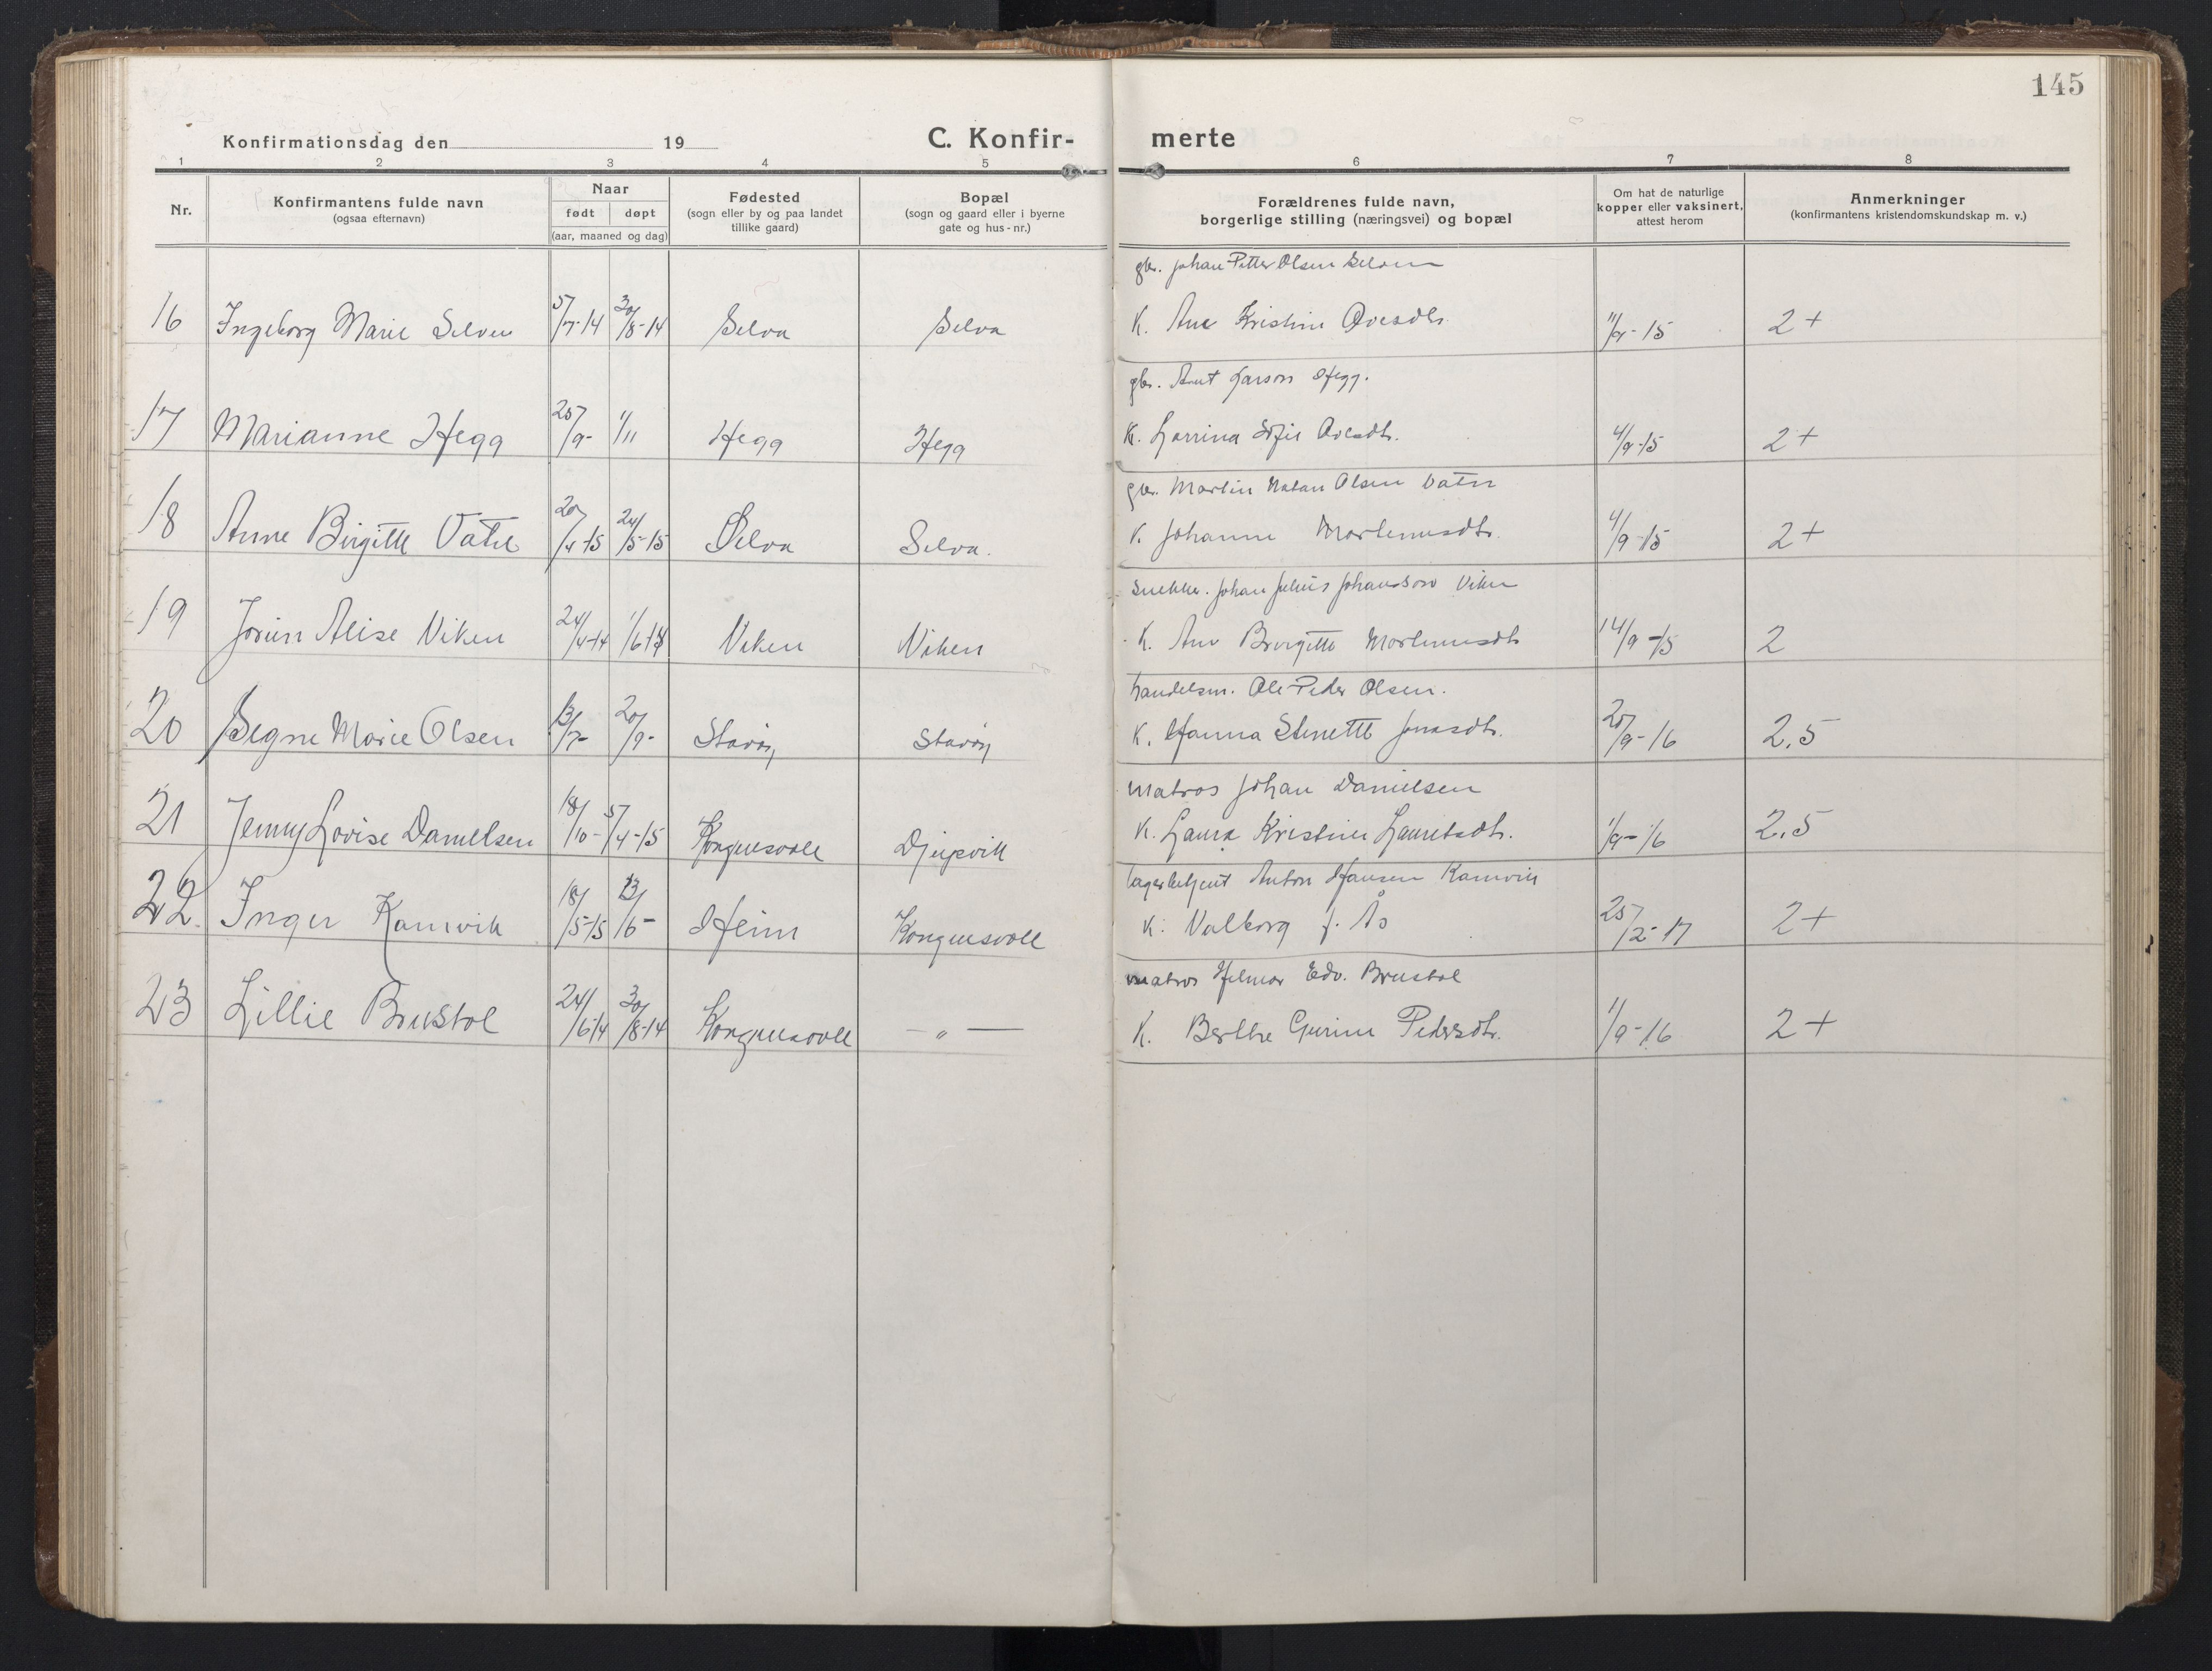 145
Konfirmationsdag den 19 C. Konfir- merte
1 2 3 4 5 6 7 8
Nr.
Konfirmantens fulde navn
(ogsaa efternavn)
Naar
født døpt
(aar, maaned og dag)
Fødested
(sogn eller by og paa landet
tillike gaard)
Bopæl
(sogn og gaard eller i byerne
gate og hus-nr.)
Forældrenes fulde navn,
borgerlige stilling (næringsvei) og bopæl
Om hat de naturlige
kopper eller vaksinert,
attest herom
Anmerkninger
(konfirmantens kristendomskundskap m. v.)
gbr. Johan Petter Olsen Selven
16 Ingeborg Marie Selven 5/7-14 30/8-14 Selva Selva K. Ane Kristine 2+
gbr. Arnt Larson Hegg.
17 Marianne Hegg 25/9- 1/11 Hegg Hegg K. Lorrina Sofie 4/9-15 2+
gbr. Martin Natan Olsen Vatn
18 Anne Birgitte Vatn 20/4-15 24/5-15 Selva Selva. K. Johanne Martenusdtr. 4/9-15 2+
snekker. Johan Julius Johanson Viken
19 Jorun Alise Viken 24/4-14 1/6-14 Viken Viken K. Ane Birgitte Martenusdtr 14/9-15 2
handelsm. Ole Peder Olsen.
20 Segne Marie Olsen 13/7- 20/9- Stavøy Stavøy K. Hanna Stenette Jonasdtr. 20/9-16 2.5
matros Johan Danielsen
21 Jenny Lovise Danielsen 18/10- 5/4-15 Kongensvoll Djupvik K. Laura Kristine Lauritsdtr. 1/9-16 2.5
lagerbetjent Anton Hansen Kamvik
22. Inger Kamvik 18/5-15 13/6- Heim Kongensvoll K: Valborg f. Ås 25/2-17 2+
matros Hilmar Edv. Brustøl
23 Lillie Brustøl 24/6-14 30/8-14 Kongensvoll — „ — K. Berthe Gurine Pedersdtr. 1/9-16 2+